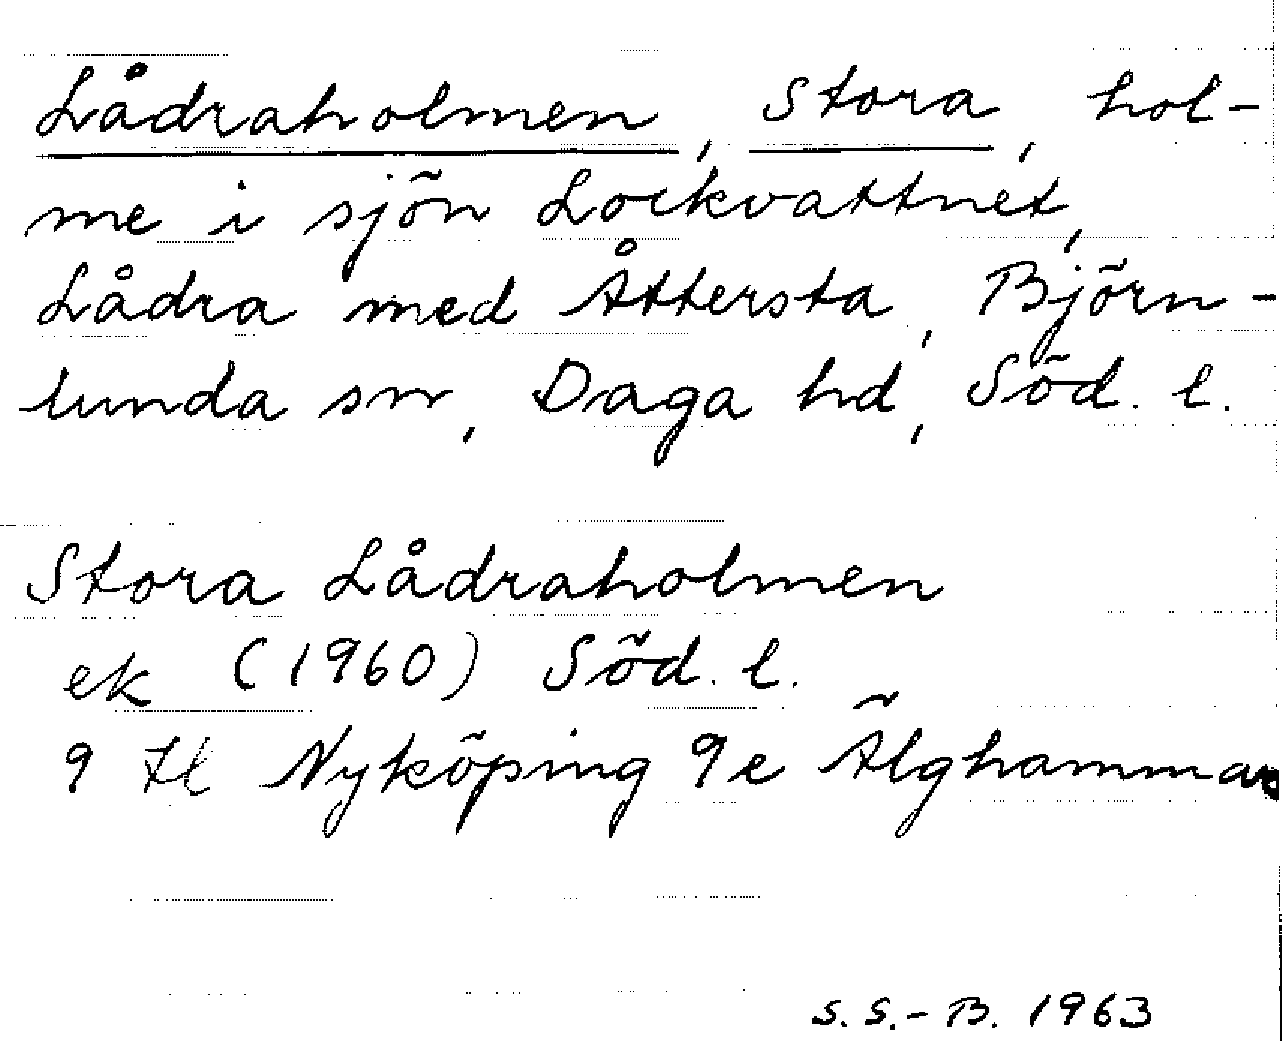 Lådraholmen, Stora, hol-
me i sjön Lockvattnet,
Lådra med Åttersta, Björn-
lunda sn, Daga hd, Söd. l.
Stora Lådraholmen
ek (1960) Söd. l.
9 H Nyköping 9e Älghammar
S. S.-B. 1963